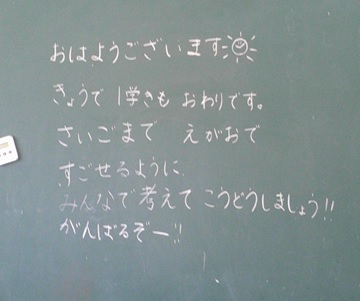 おはようございます
きょうで 1学きも おわりです。
さいごまで えがおで
すごせるように
みんなで考えて こうどうしましょう!!
がんばるぞー!!